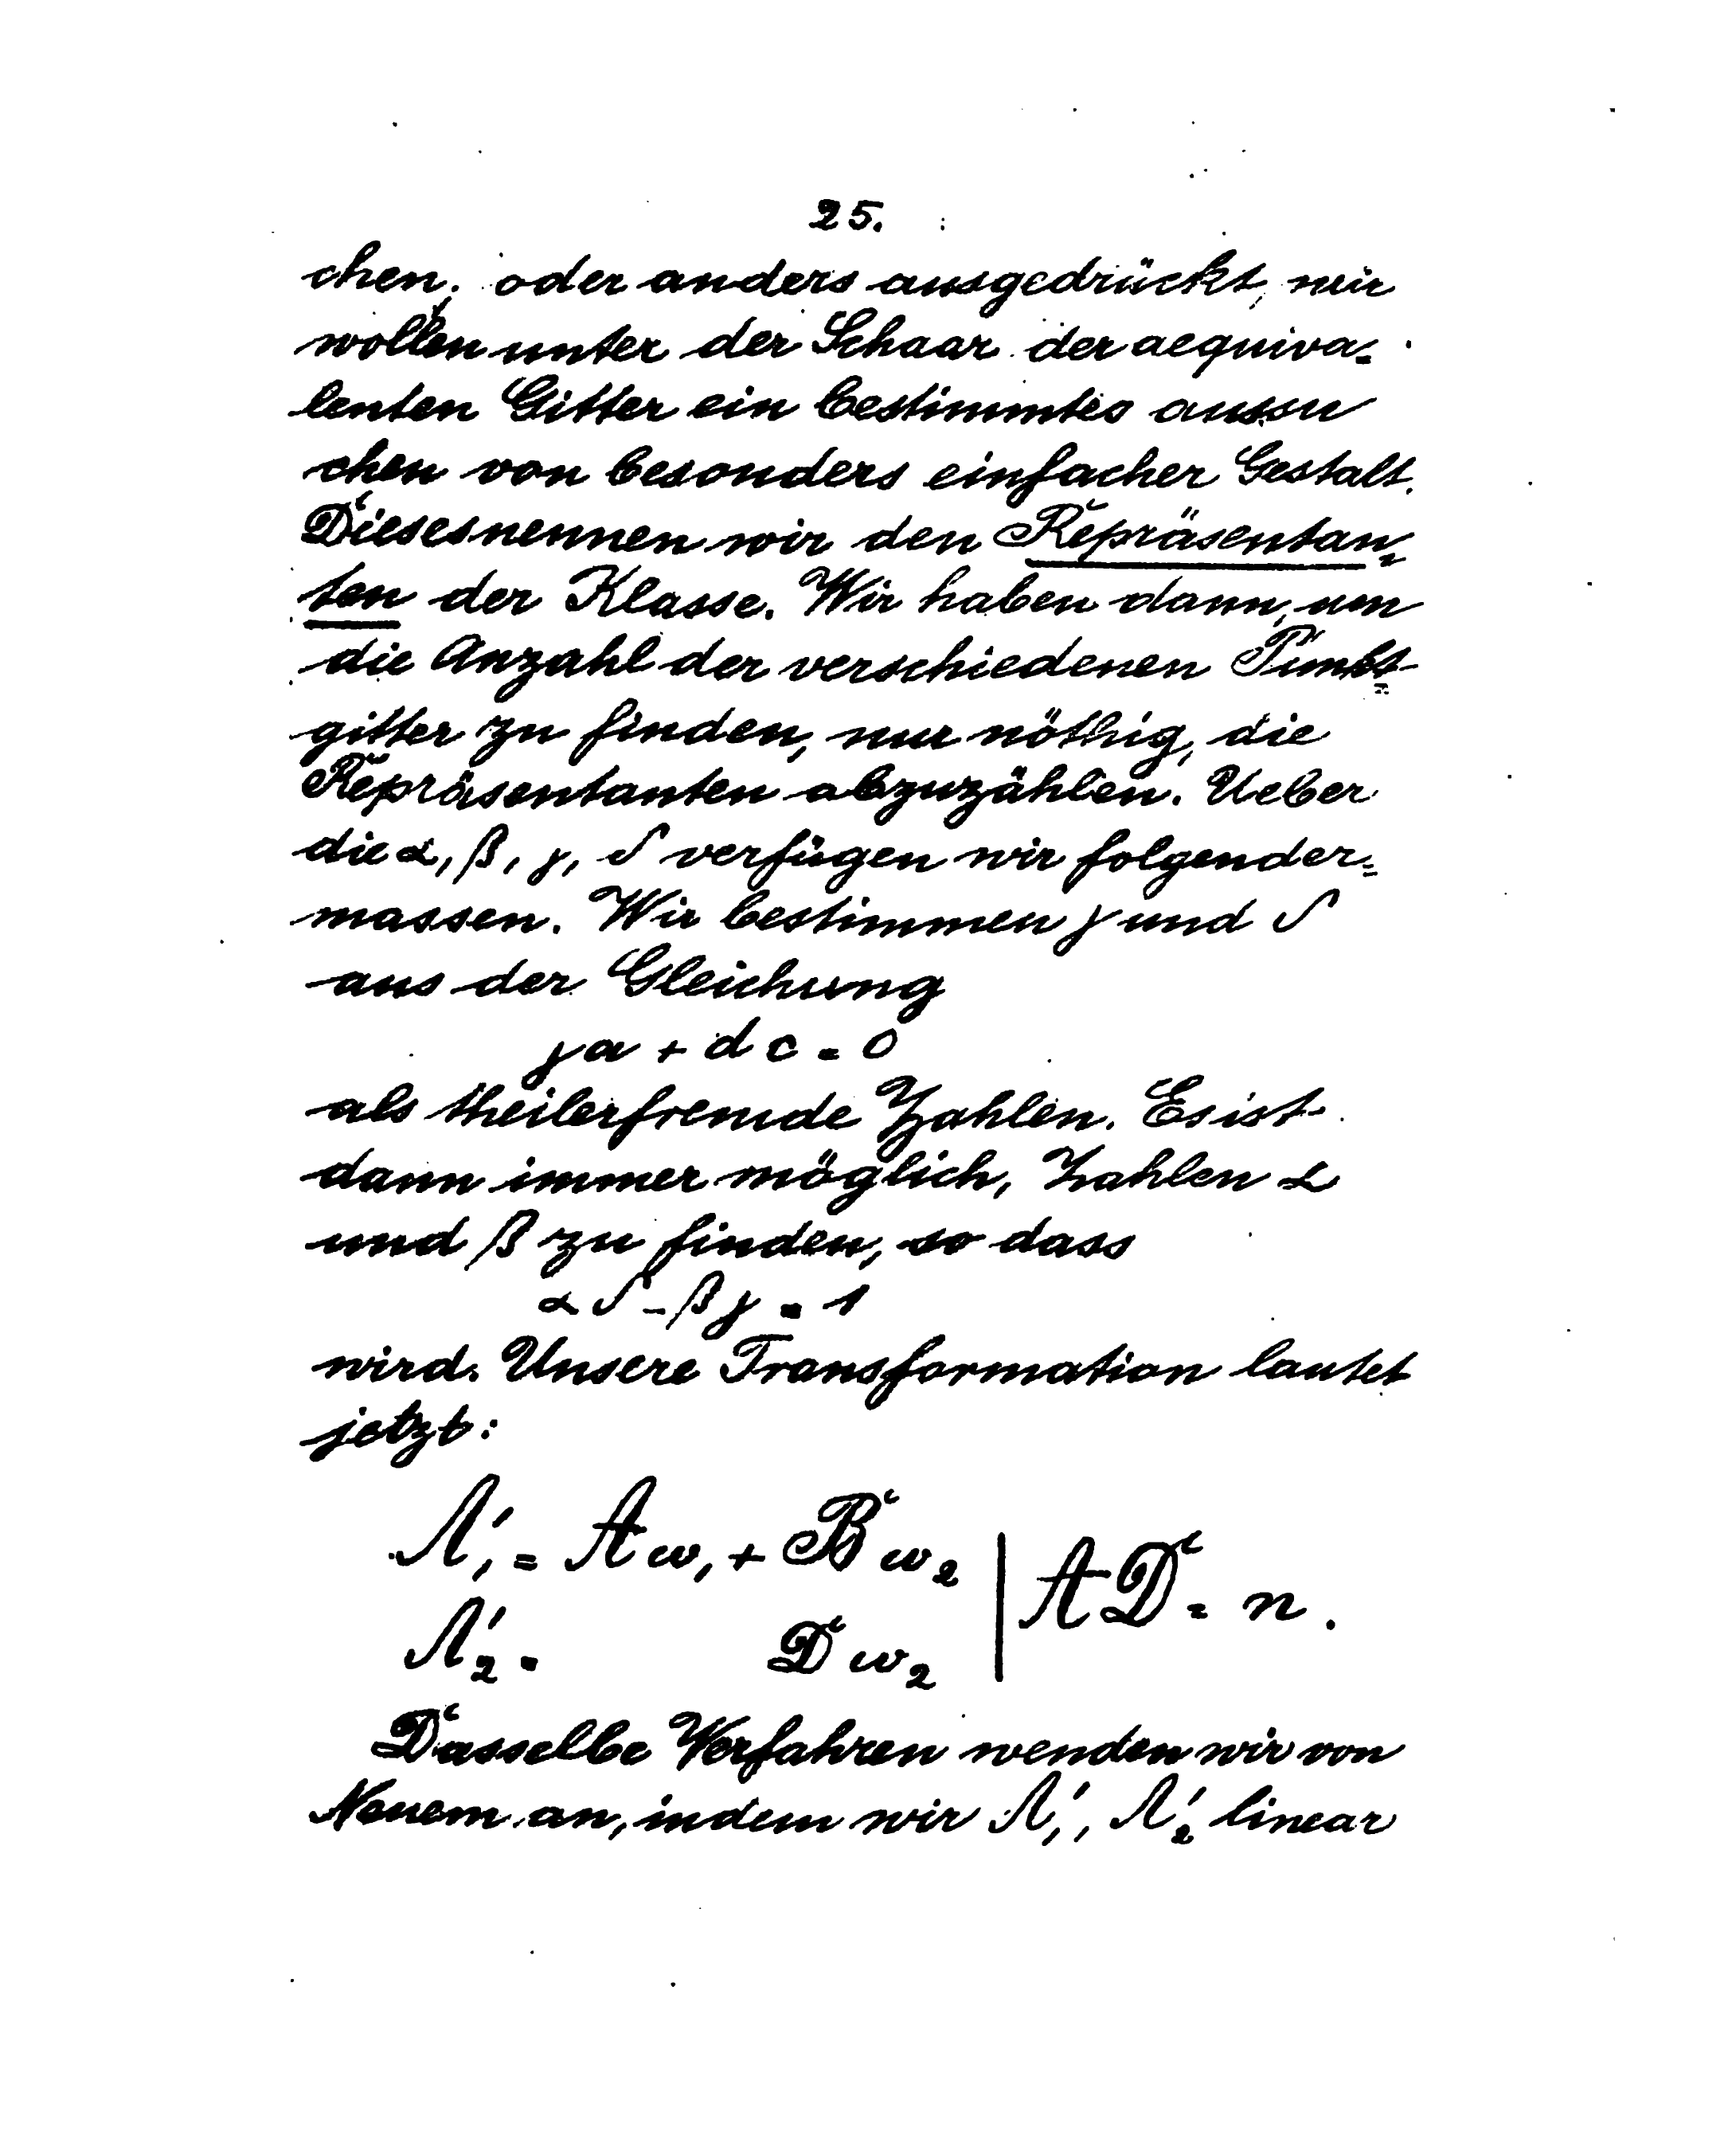 25.
chen; oder anders ausgedrückt, wir
wollen unter der Schaar der aequiva=
lenten Gitter ein bestimmtes aussu
chen von besonders einfacher Gestalt.
Dieses nennen wir den Repräsentan=
ten der Klasse. Wir haben dann, um
die Anzahl der verschiedenen Punkt=
gitter zu finden, nur nöthig, die
Repräsentanten abzuzählen. Ueber
die α, β, γ, δ verfügen wir folgender=
massen. Wir bestimmen γ und δ
aus der Gleichung
γa + dc = 0
als theilerfremde Zahlen. Es ist
dann immer möglich, Zahlen α
und β zu finden, so dass
αδ - βγ = 1
wird. Unsere Transformation lautet
jetzt:
Λ'₁ = Aω₁ + Bω₂ | AD = n.
Λ'₂ = Dω₂
Dasselbe Verfahren wenden wir von
Neuem an, indem wir Λ'₁, Λ'₂ linear